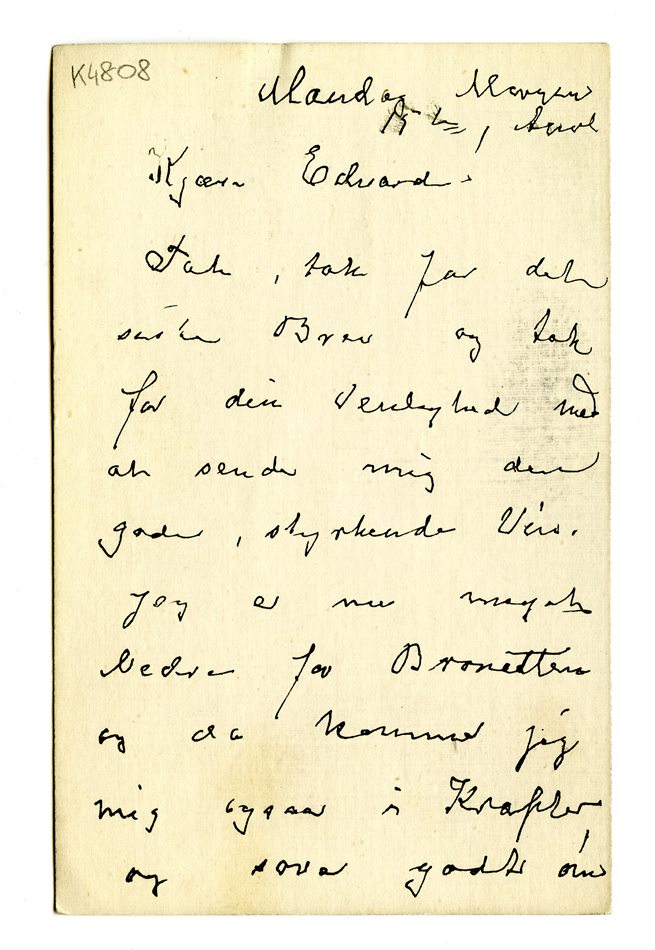 K4808
Mandag Morgen
15de, April
Kjære Edvard.
Tak, tak for det
sidste Brev og tak
for din Venlighed med
at sende mig den
gode, styrkende Vin.
Jeg er nu meget
bedre for Bronchitten
og da kommer jeg
mig ogsaa i Kræfter
og sover godt om